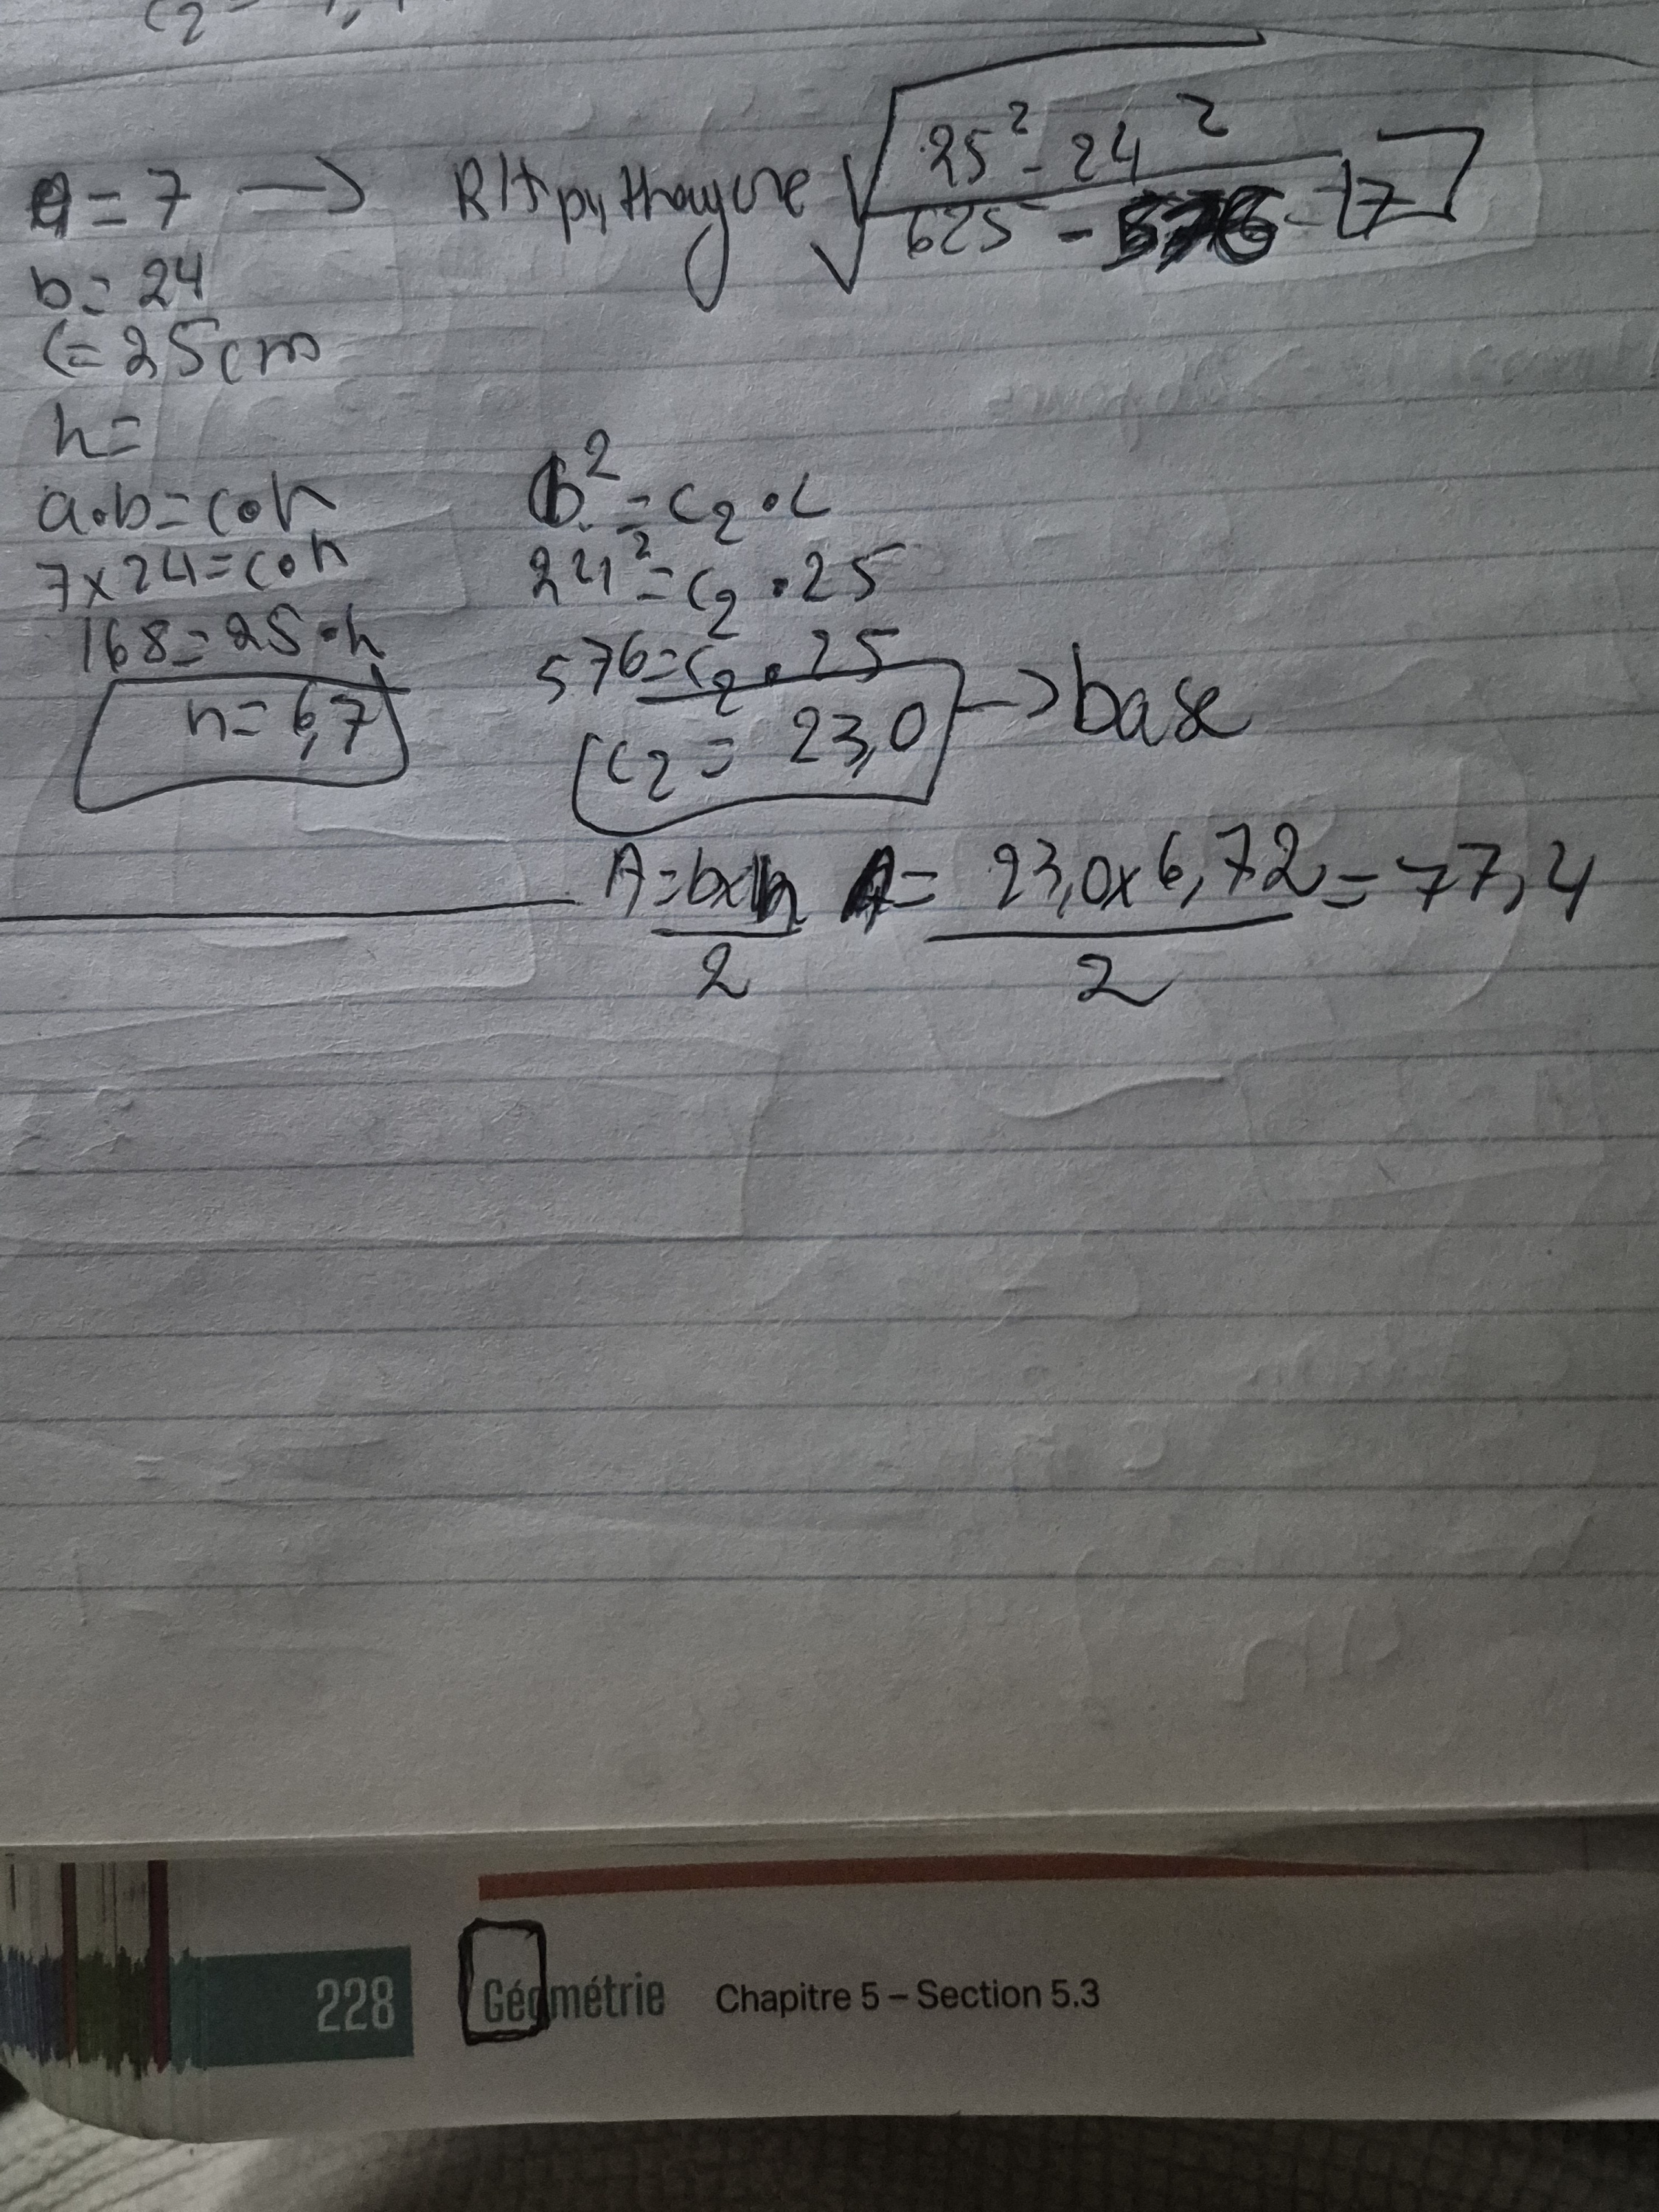 c2 =
a = 7 → R/+ pythagore √25² - 24²
625 - 576 = 7
b = 24
c = 25cm
h =
a•b = c•h
7 x 24 = c•h
168 = 25•h
h = 6,7
b² = c2 • c
24² = c2 • 25
576 = c2 • 25
c2 = 23,0 → base
A = bxh A = 23,0 x 6,72 = 77,4
2 2
228 Géométrie Chapitre 5 – Section 5.3